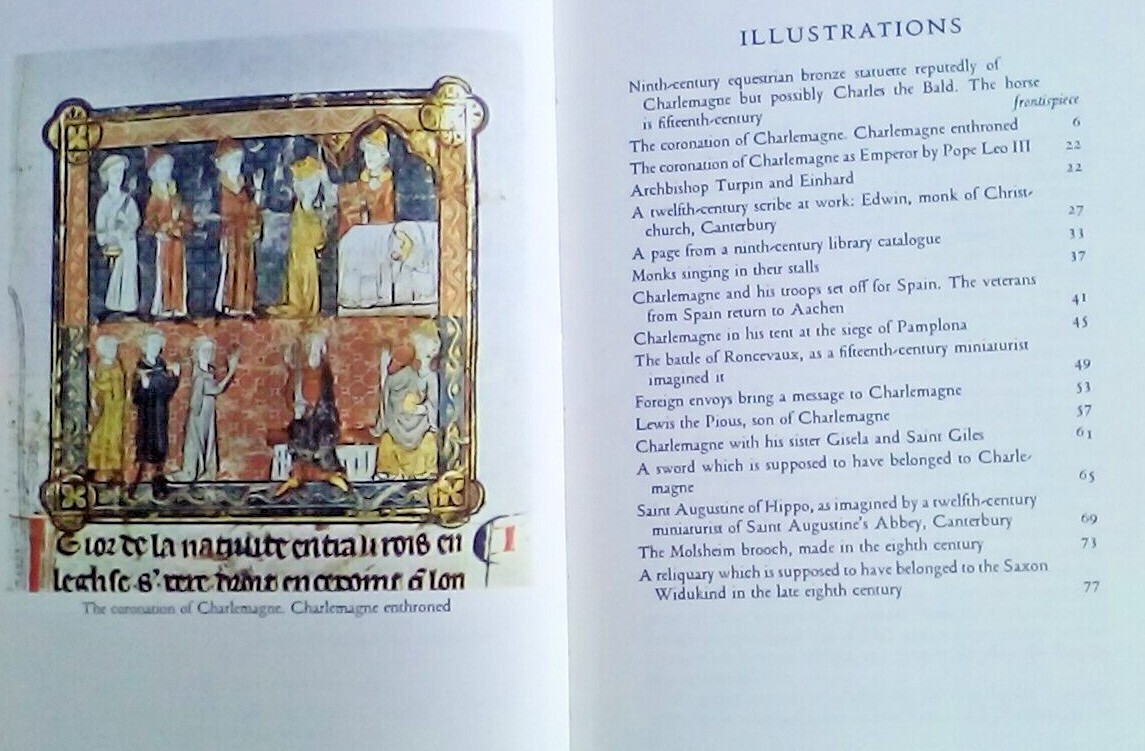 The coronation of Charlemagne. Charlemagne enthroned
ILLUSTRATIONS
Ninth-century equestrian bronze statuette reputedly of
Charlemagne but possibly Charles the Bald. The horse
is fifteenth-century frontispiece
The coronation of Charlemagne. Charlemagne enthroned 6
The coronation of Charlemagne as Emperor by Pope Leo III 22
Archbishop Turpin and Einhard 22
A twelfth-century scribe at work: Edwin, monk of Christ-
church, Canterbury 27
A page from a ninth-century library catalogue 33
Monks singing in their stalls 37
Charlemagne and his troops set off for Spain. The veterans
from Spain return to Aachen 41
Charlemagne in his tent at the siege of Pamplona 45
The battle of Roncevaux, as a fifteenth-century miniaturist
imagined it 49
Foreign envoys bring a message to Charlemagne 53
Lewis the Pious, son of Charlemagne 57
Charlemagne with his sister Gisela and Saint Giles 61
A sword which is supposed to have belonged to Charle-
magne 65
Saint Augustine of Hippo, as imagined by a twelfth-century
miniaturist of Saint Augustine's Abbey, Canterbury 69
The Molsheim brooch, made in the eighth century 73
A reliquary which is supposed to have belonged to the Saxon
Widukind in the late eighth century 77